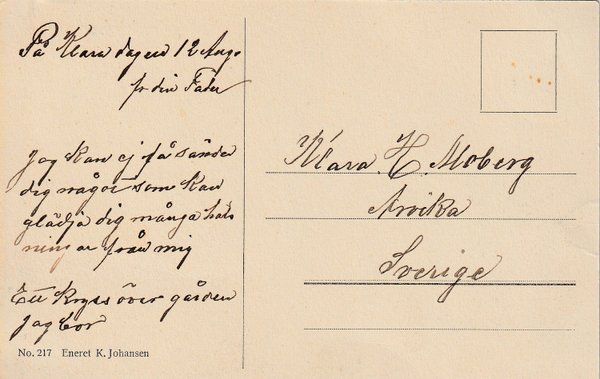 På Klara dagen 12 Aug.
fr din Fader
Jag kan ej få sänder
dig något som kan
glädja dig många häls
ningar från mig
Ett kryss över gården
jag bor
Klara H. Moberg
Arvika
Sverige
No. 217 Eneret K. Johansen